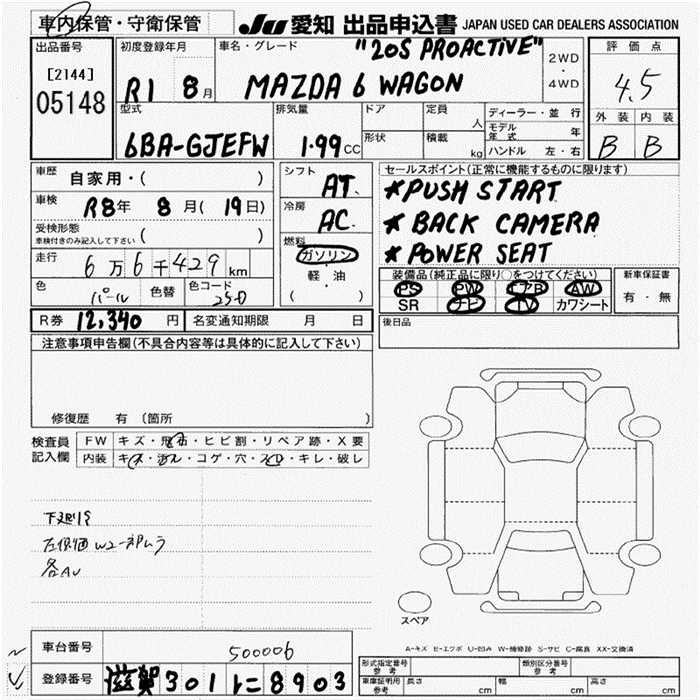 車内保管・守衛保管
JU 愛知 出品申込書 JAPAN USED CAR DEALERS ASSOCIATION
出品番号
[2144]
05148
初度登録年月
R1 8月
車名・グレード
"20S PROACTIVE"
MAZDA 6 WAGON
2WD
・
4WD
評価点
4.5
外装 内装
B B
型式
6BA-GJEFW
排気量
1.99 CC
ドア
形状
定員
人
積載
kg
ディーラー・並行
モデル年式 年
ハンドル 左・右
車歴
自家用・( )
車検
R8年 8月( 19日)
受検形態
車検付きのみ記入して下さい ( )
走行
6万6千429km
色
パール
色替
色コード
25D
シフト
AT
冷房
AC
燃料
ガソリン
軽・油
( )
セールスポイント(正常に機能するものに限ります)
*PUSH START
*BACK CAMERA
*POWER SEAT
装備品(純正品に限り○をつけてください)
PS PW エアB AW
SR ナビ TV カワシート
新車保証書
有・無
R券 12,340円
名変通知期限 月 日
後日品
注意事項申告欄(不具合内容等は具体的に記入して下さい)
修復歴 有 (箇所
検査員
記入欄
FW キズ・飛石・ヒビ割・リペア跡・X要
内装 キズ・汚れ・コゲ・穴・スレ・キレ・破レ
下廻りS
左側面W2一部ムラ
各AU
スペア
A-キズ E-エクボ U-凹み W-補修跡 S-サビ C-腐食 XX-交換済
車台番号
500006
登録番号
滋賀301に8903
形式指定番号
参考
類別区分番号
参考
車庫証明用
参考
長さ cm
幅 cm
高さ cm